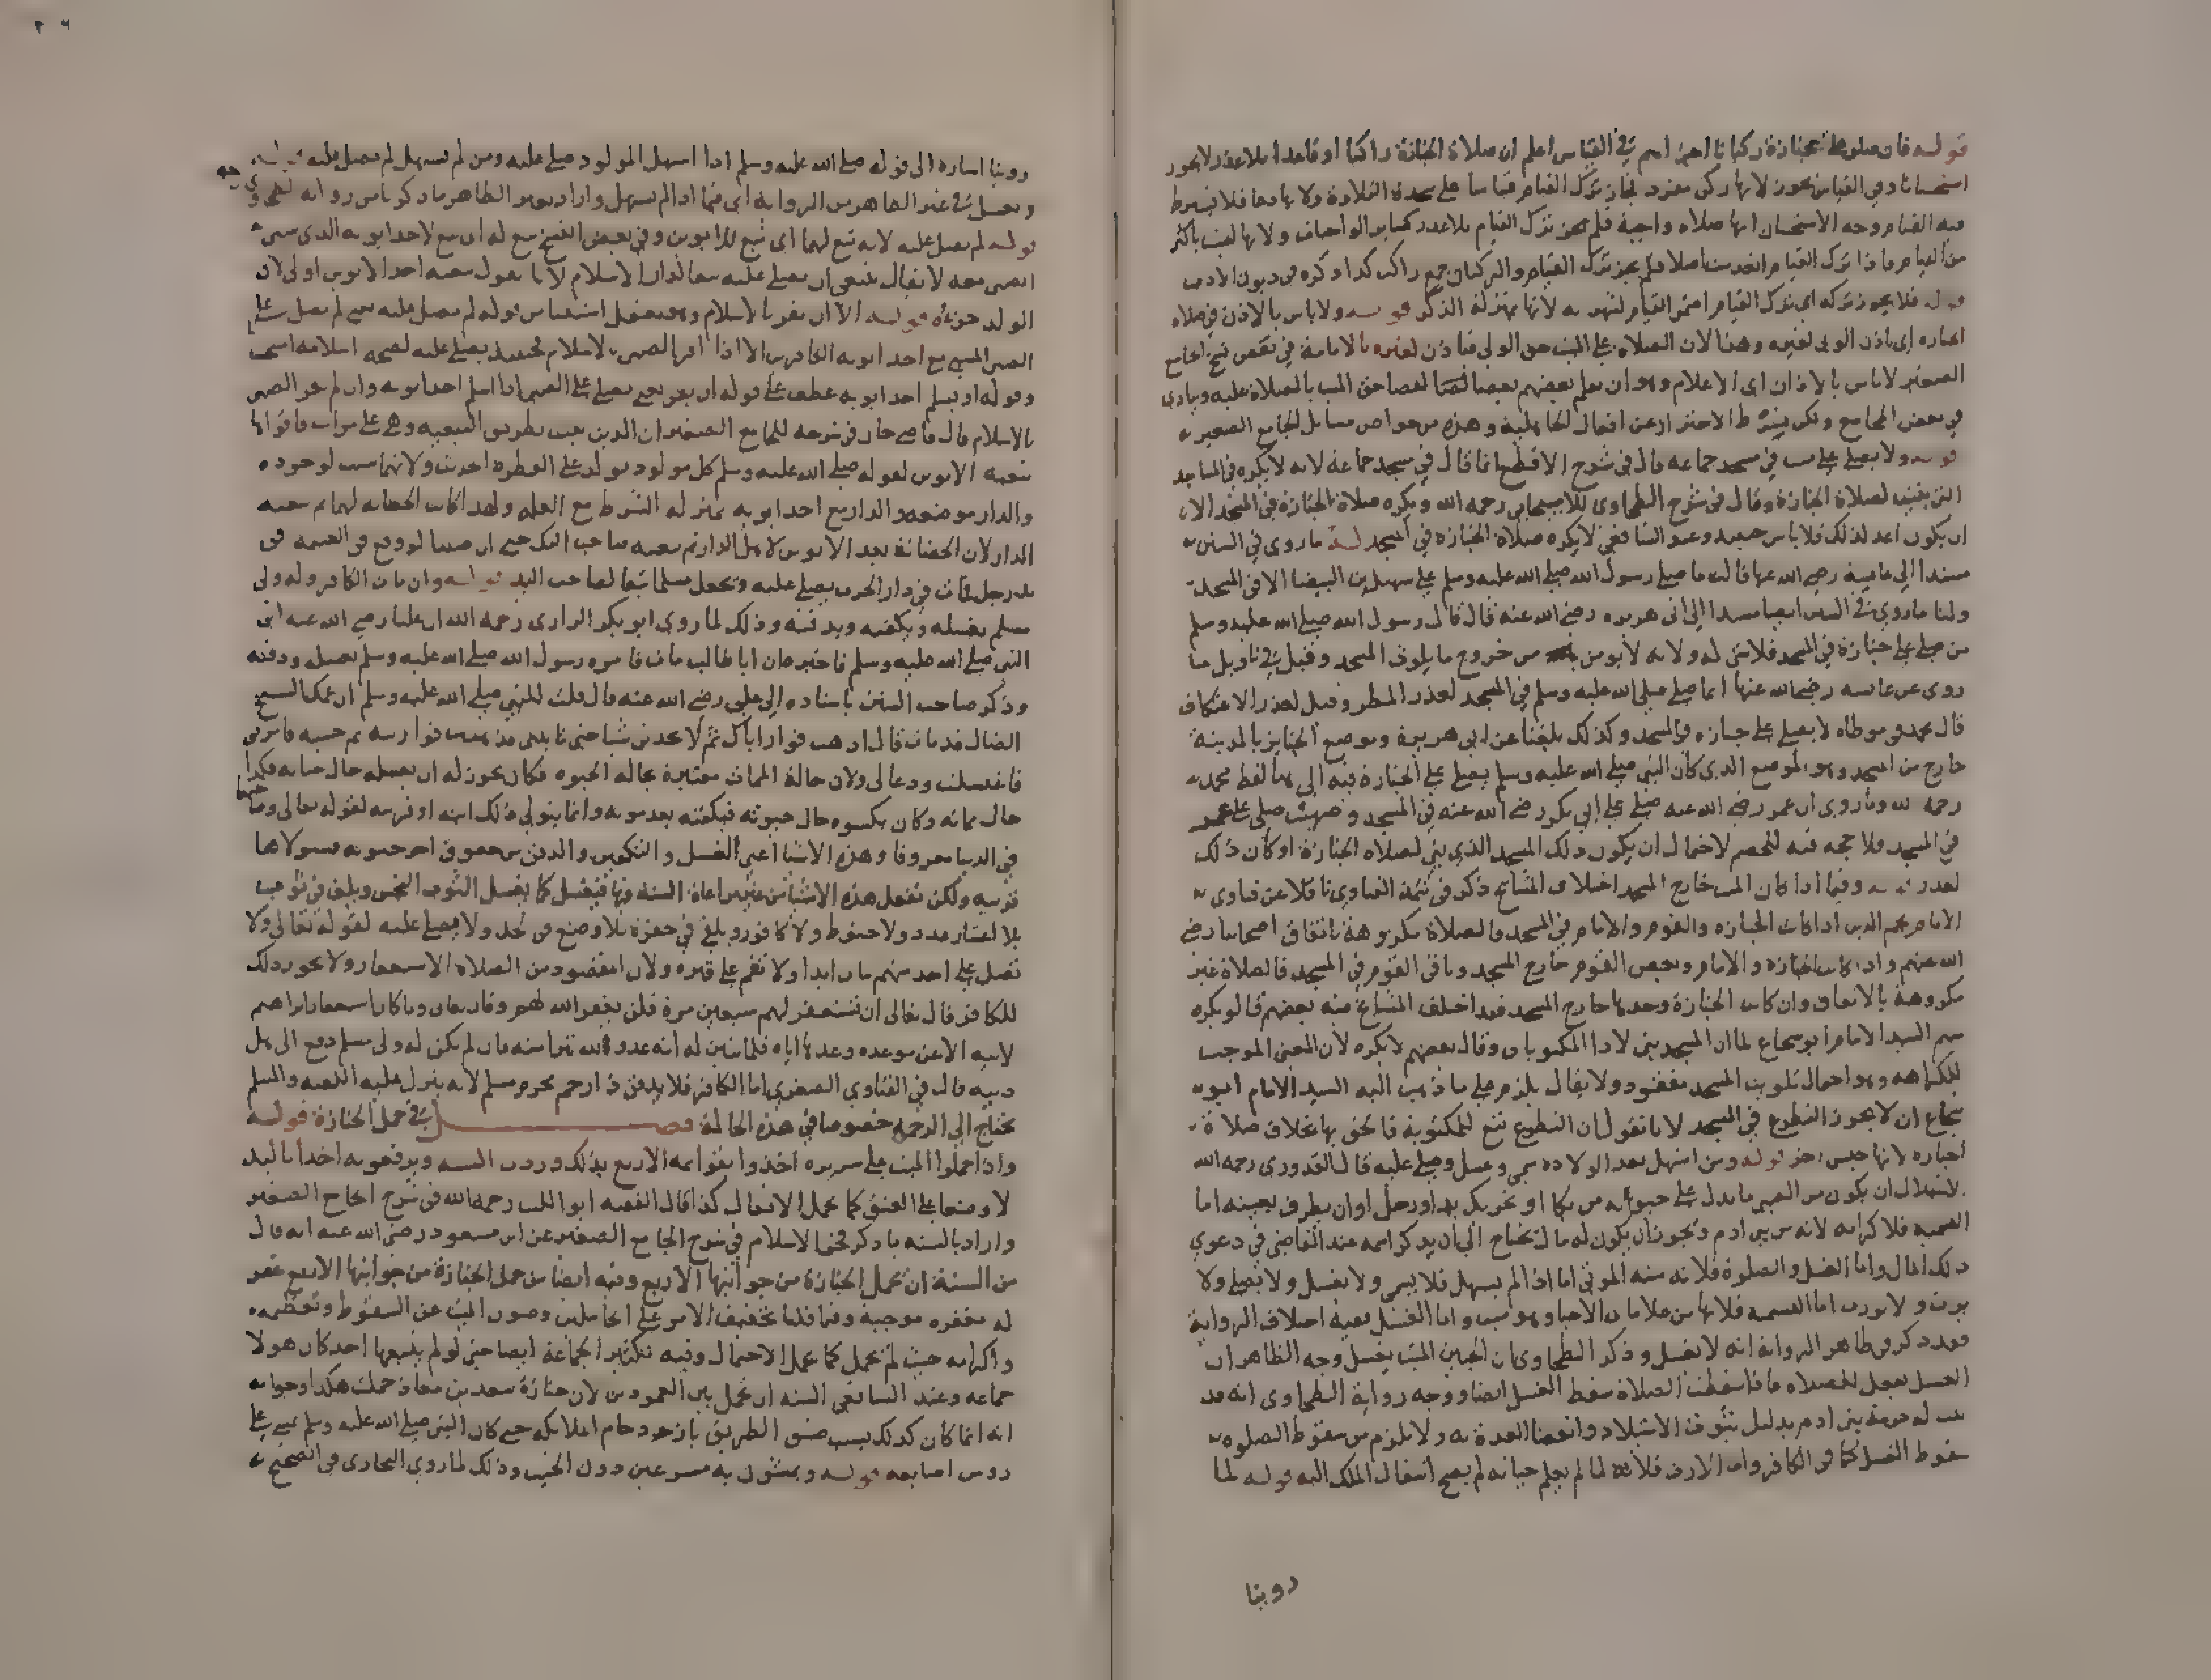 قوله فان صلوا على جنازة ركبانا اجزأهم في القياس اعلم ان صلاة الجنازة راكبا او قاعدا بلا عذر لا يجوز
استحسانا وفي القياس يجوز لانها ركن مفرد فجاز ترك القيام قياسا على سجدة التلاوة ولانها دعا فلا يشترط
فيه القيام وجه الاستحسان انها صلاة واجبة فلم يجز ترك القيام بلا عذر كسائر الواجبات ولانها ليست باكثر
من القيام فاذا ترك القيام انعدمت اصلا فلم يجز ترك القيام والركبان جمع راكب كذا ذكره في ديوان الادب
قوله فلا يجوز تركه اي ترك القيام
قوله ولا باس بالاذن في صلاة
الجنازة اي باذن الولي لغيره وهذا لان الصلاة على الميت حق الولي فياذن لغيره بالامامة في بعض نسخ الجامع
الصغير لا باس بالاذان اي الاعلام وهو ان يعلم بعضهم بعضا حق الميت بالصلاة عليه
في بعض المجامع ولكن يشترط الاحتراز عن افعال الجاهلية وهذه من خواص مسايل الجامع الصغير
قوله ولا يصلى على ميت في مسجد جماعة قال في شرح الاقطع انما قال في مسجد جماعة لانه لا يكره في المساجد
التي بنيت لصلاة الجنازة وقال في شرح الطحاوي للاسبيجابي رحمه الله ويكره صلاة الجنازة في المسجد الا
ان يكون اعد لذلك فلا باس حينئذ وعند الشافعي لا يكره صلاة الجنازة في المسجد له ما روي في السنن
مسندا الى عايشة رضي الله عنها قالت ما صلى رسول الله صلى الله عليه وسلم على سهيل بن البيضا الا في المسجد
ولنا ما روي في السنن ايضا مسندا الى ابي هريرة رضي الله عنه قال قال رسول الله صلى الله عليه وسلم
من صلى على جنازة في المسجد فلا شي له ولانه لا يومن من خروج ما يلوث المسجد وقيل في تاويل ما
روي عن عايشة رضي الله عنها انما صلى صلى الله عليه وسلم في المسجد لعذر المطر وقيل لعذر الاعتكاف
قال محمد في موطاه لا يصلى على جنازة في المسجد وكذلك بلغنا عن ابي هريرة وموضع الجنايز بالمدينة
خارج من المسجد وهو الموضع الذي كان النبي صلى الله عليه وسلم يصلي على الجنازة فيه الى هنا لفظ محمد
رحمه الله وما روي ان عمر رضي الله عنه صلى على ابي بكر رضي الله عنه في المسجد وصهيب صلى على عمر
في المسجد فلا حجة فيه للخصم لاحتمال ان يكون ذلك المسجد الذي بني لصلاة الجنازة او كان ذلك
لعذر قوله وفيما اذا كان الميت خارج المسجد اختلاف المشايخ ذكر في تتمة الفتاوي ناقلا عن فتاوى
الامام نجم الدين اذا كانت الجنازة والقوم والامام في المسجد فالصلاة مكروهة باتفاق اصحابنا رضي
الله عنهم واذا كانت الجنازة والامام وبعض القوم خارج المسجد وباقي القوم في المسجد فالصلاة غير
مكروهة بالاتفاق وان كانت الجنازة وحدها خارج المسجد فقد اختلف المشايخ فيه بعضهم قالوا يكره
منهم السيد الامام ابو شجاع لما ان المسجد بني لادا المكتوبات وقال بعضهم لا يكره لان المعنى الموجب
للكراهة وهو احتمال تلويث المسجد مفقود ولا يقال يلزم على ما ذهب اليه السيد الامام ابو
شجاع ان لا يجوز التطوع في المسجد لانا نقول ان التطوع تبع للمكتوبة فالحق بها بخلاف صلاة
الجنازة لانها جنس اخر قوله ومن استهل بعد الولادة سمي وغسل وصلي عليه قال القدوري رحمه الله
الاستهلال ان يكون من الصبي ما يدل على حيوته من بكا او تحريك يد او رجل او ان يطرف بعينه اما
التسمية فلا كرامه لانه من بني ادم ويجوز ان يكون له مال يحتاج الى ان يذكر اسمه عند القاضي في دعوى
ذلك المال واما الغسل والصلوة فلانه سنة الموتى اما اذا لم يستهل فلا يسمى ولا يغسل ولا يصلى ولا
يرث ولا يورث اما التسمية فلانها من علامات الاحيا وهو ميت واما الغسل ففيه اختلاف الرواية
فقد ذكر في ظاهر الرواية انه لا يغسل وذكر الطحاوي ان الجنين الميت يغسل وجه الظاهر ان
الغسل يجعل للصلاة فاذا سقطت الصلاة سقط الغسل ايضا ووجه رواية الطحاوي انه قد
ثبت له حرمة بني ادم بدليل ثبوت الاستيلاد وانقضا العدة به ولا يلزم من سقوط الصلوة
سقوط الغسل كما في الكافر واما الارث فلانه لما لم يعلم حياته لم يصح انتقال الملك اليه قوله لما
روينا
روينا اشارة الى قوله صلى الله عليه وسلم اذا استهل المولود صلي عليه ومن لم يستهل لم يصل عليه قوله
ويغسل في غير الظاهر من الرواية اي فيما اذا لم يستهل واراد بغير الظاهر ما ذكرنا من رواية الطحاوي
قوله لم يصل عليه لانه تبع لهما اي تبع للابوين وفي بعض النسخ تبع له اي تبع لاحد ابويه الذي سبي
الصبي معه لا يقال ينبغي ان يصلى عليه تبعا لدار الاسلام لانا نقول تبعية احد الابوين اولى لان
الولد جزؤه قوله الا ان يقر بالاسلام وهو يعقل استثنا من قوله لم يصل عليه يعني لم يصل على
الصبي المسبي مع احد ابويه الكافرين الا اذا اقر الصبي بالاسلام فحينئذ يصلى عليه لصحة اسلامه استحسانا
وقوله او يسلم احد ابويه عطف على قوله ان يقر يعني يصلى على الصبي اذا اسلم احد ابويه وان لم يقر الصبي
بالاسلام قال قاضي خان في شرحه للجامع الصغير ان الدين يثبت بطريق التبعية وهي على مراتب فاقواها
تبعية الابوين لقوله صلى الله عليه وسلم كل مولود يولد على الفطرة الحديث ولانهما سبب لوجوده
والدار مع احد ابويه بمنزلة الشرط مع العلة ولهذا كانت الحضانة لهما ثم تبعية
الدار لان الحضانة بعد الابوين لاهل الدار ثم تبعية صاحب اليد حتى ان صبيا لو وقع في الغنيمة في
يد رجل فمات في دار الحرب يصلى عليه ويجعل مسلما تبعا لصاحب اليد قوله وان مات الكافر وله ولي
مسلم يغسله ويكفنه ويدفنه وذلك لما روى ابو بكر الرازي رحمه الله ان عليا رضي الله عنه اتى
النبي صلى الله عليه وسلم فاخبره ان ابا طالب مات فامره رسول الله صلى الله عليه وسلم بغسله ودفنه
وذكر صاحب السنن باسناده الى علي رضي الله عنه قال قلت للنبي صلى الله عليه وسلم ان عمك الشيخ
الضال قد مات قال اذهب فوار اباك ثم لا تحدثن شيا حتى تاتيني فذهبت فواريته ثم جيته فامرني
فاغتسلت ودعا لي ولان حالة الممات معتبرة بحالة الحيوة فكان يجوز له ان يغسله حال حياته فكذا
حال مماته وكان يكسوه حال حيوته فيكفنه بعد موته وانما يتولى ذلك ابنه او قريبه لقوله تعالى وصاحبهما
في الدنيا معروفا وهذه الاشيا اعني الغسل والتكفين والدفن من حقوق اخر حيوته فتولاها
قريبه ولكن تفعل هذه الاشيا من غير مراعاة السنة فيها فيغسل كما يغسل الثوب النجس ويلف في ثوب
بلا اعتبار عدد ولا حنوط ولا كافور ويلقى في حفرة بلا وضع في لحد ولا يصلى عليه لقوله تعالى ولا
تصل على احد منهم مات ابدا ولا تقم على قبره ولان المقصود من الصلاة الاستغفار ولا يجوز ذلك
للكافر قال تعالى ان تستغفر لهم سبعين مرة فلن يغفر الله لهم وقال تعالى وما كان استغفار ابراهيم
لابيه الا عن موعدة وعدها اياه فلما تبين له انه عدو لله تبرا منه فان لم يكن له ولي مسلم دفع الى اهل
دينه قال في الفتاوي الصغرى اما الكافر فلا يدفن ذا رحم محرم مسلم لانه ينزل عليه اللعنة والمسلم
يحتاج الى الرحمة خصوصا في هذه الحالة فصل في حمل الجنازة قوله
واذا حملوا الميت على سريره اخذوا بقوايمه الاربع بذلك وردت السنة ويرفعونه اخذا باليد
لا وضعا على العنق كما يحمل الاثقال كذا قال الفقيه ابو الليث رحمه الله في شرح الجامع الصغير
واراد بالسنة ما ذكر فخر الاسلام في شرح الجامع الصغير عن ابن مسعود رضي الله عنه انه قال
من السنة ان تحمل الجنازة من جوانبها الاربع وفيه ايضا من حمل الجنازة من جوانبها الاربع غفر
له مغفرة موجبة وفيما قلنا تخفيف الامر على الحاملين وصون الميت عن السقوط وتعظيمه
واكرامه حيث لم يحمل كما يحمل الاحمال وفيه تكثير الجماعة ايضا حتى لو لم يتبعها احد كان هولا
جماعة وعند الشافعي السنة ان تحمل بين العمودين لان جنازة سعد بن معاذ حملت هكذا وجوابه
انه انما كان كذلك بسبب ضيق الطريق بازدحام الملايكة حتى كان النبي صلى الله عليه وسلم يمشي على
روس اصابعه قوله ويمشون به مسرعين دون الخبب وذلك لما روى البخاري في الصحيح